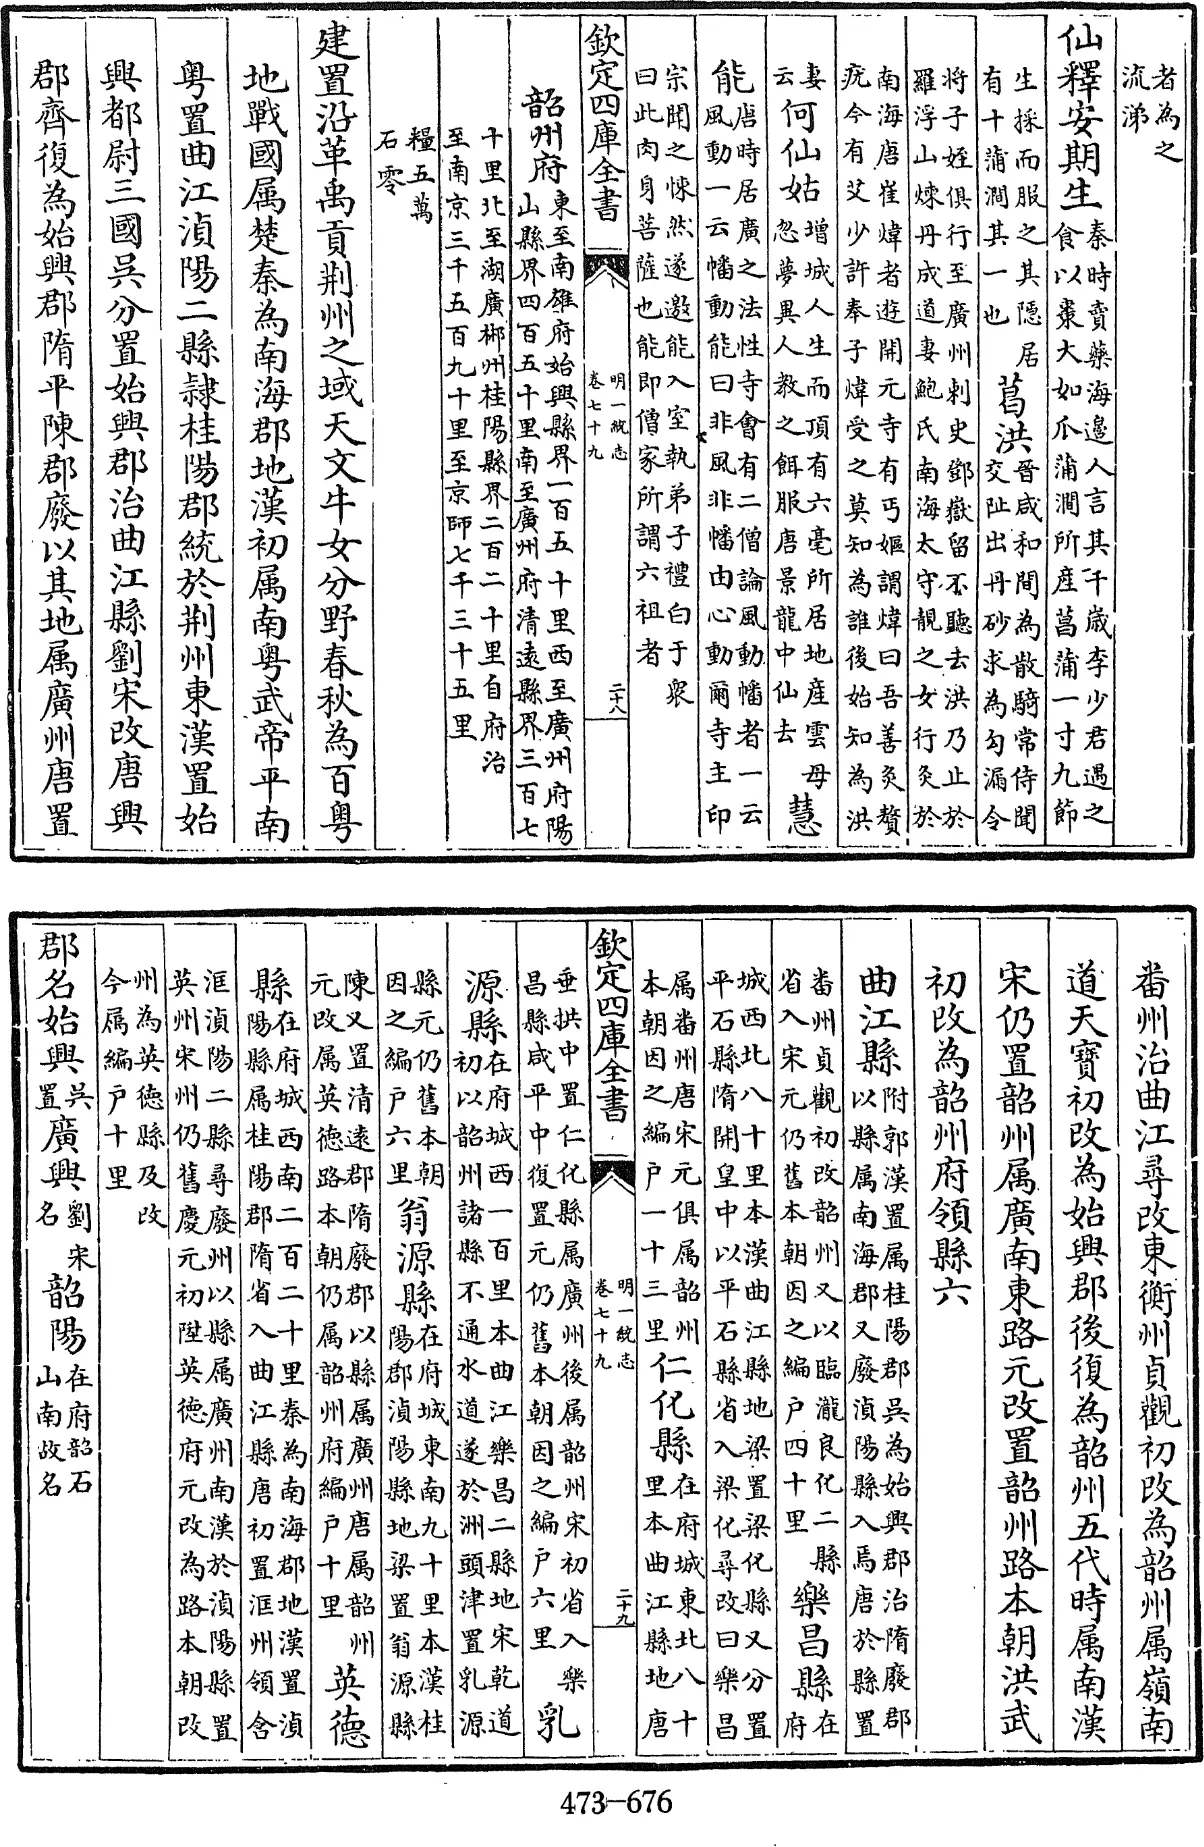 者為之
流涕
仙釋安期生秦時賣藥海邊人言其千歲李少君遇之
食以棗大如爪蒲澗所產菖蒲一寸九節
生採而服之其隱居
有十蒲澗其一也葛洪晉咸和間為散騎常侍聞
交阯出丹砂求為勾漏令
將子姪俱行至廣州刺史鄧嶽留不聽去洪乃止於
羅浮山煉丹成道妻鮑氏南海太守靚之女行灸於
南海唐崔煒者遊開元寺有丐嫗謂煒曰吾善灸贅
疣今有艾少許奉子煒受之莫知為誰後始知為洪
妻
云何仙姑增城人生而頂有六毫所居地產雲母
忽夢異人教之餌服唐景龍中仙去慧
能唐時居廣之法性寺會有二僧論風動幡者一云
風動一云幡動能曰非風非幡由心動爾寺主印
宗聞之悚然遂邀能入室執弟子禮白于衆
曰此肉身菩薩也能即僧家所謂六祖者
欽定四庫全書
明一統志
卷七十九
二十八
韶州府東至南雄府始興縣界一百五十里西至廣州府陽
山縣界四百五十里南至廣州府清遠縣界三百七
十里北至湖廣郴州桂陽縣界二百二十里自府治
至南京三千五百九十里至京師七千三十五里
糧五萬
石零
建置沿革禹貢荆州之域天文牛女分野春秋為百粤
地戰國属楚秦為南海郡地漢初属南粤武帝平南
粤置曲江湞陽二縣隷桂陽郡統於荆州東漢置始
興都尉三國吳分置始興郡治曲江縣劉宋改唐興
郡齊復為始興郡隋平陳郡廢以其地属廣州唐置
番州治曲江尋改東衡州貞觀初改為韶州属嶺南
道天寶初改為始興郡後復為韶州五代時属南漢
宋仍置韶州属廣南東路元改置韶州路本朝洪武
初改為韶州府領縣六
曲江縣附郭漢置属桂陽郡吳為始興郡治隋廢郡
以縣属南海郡又廢湞陽縣入焉唐於縣置
番州貞觀初改韶州又以臨瀧良化二縣
省入宋元仍舊本朝因之編户四十里樂昌縣在
府
城西北八十里本漢曲江縣地梁置梁化縣又分置
平石縣隋開皇中以平石縣省入梁化尋改曰樂昌
属番州唐宋元俱属韶州
本朝因之編户一十三里仁化縣在府城東北八十
里本曲江縣地唐
欽定四庫全書
明一統志
卷七十九
二十九
垂拱中置仁化縣属廣州後属韶州宋初省入樂
昌縣咸平中復置元仍舊本朝因之編户六里乳
源縣在府城西一百里本曲江樂昌二縣地宋乾道
初以韶州諸縣不通水道遂於洲頭津置乳源
縣元仍舊本朝
因之編户六里翁源縣在府城東南九十里本漢桂
陽郡湞陽縣地梁置翁源縣
陳又置清遠郡隋廢郡以縣属廣州唐属韶州
元改属英德路本朝仍属韶州府編户十里英德
縣在府城西南二百二十里秦為南海郡地漢置湞
陽縣属桂陽郡隋省入曲江縣唐初置洭州領含
洭湞陽二縣尋廢州以縣属廣州南漢於湞陽縣置
英州宋州仍舊慶元初陞英德府元改為路本朝改
州為英德縣及改
今属編户十里
郡名始興吳
置廣興劉宋
名韶陽在府韶石
山南故名
473—676